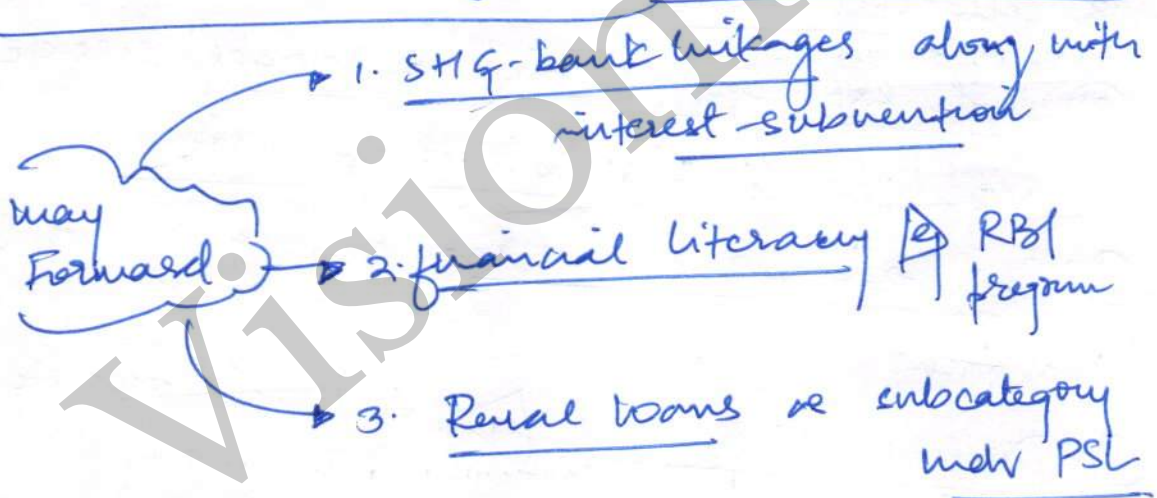 1. SHG-bank linkages along with
interest-subvention
Way
Forward
2. financial literacy eg RBI
program
3. Rural loans as subcategory
under PSL
Vision